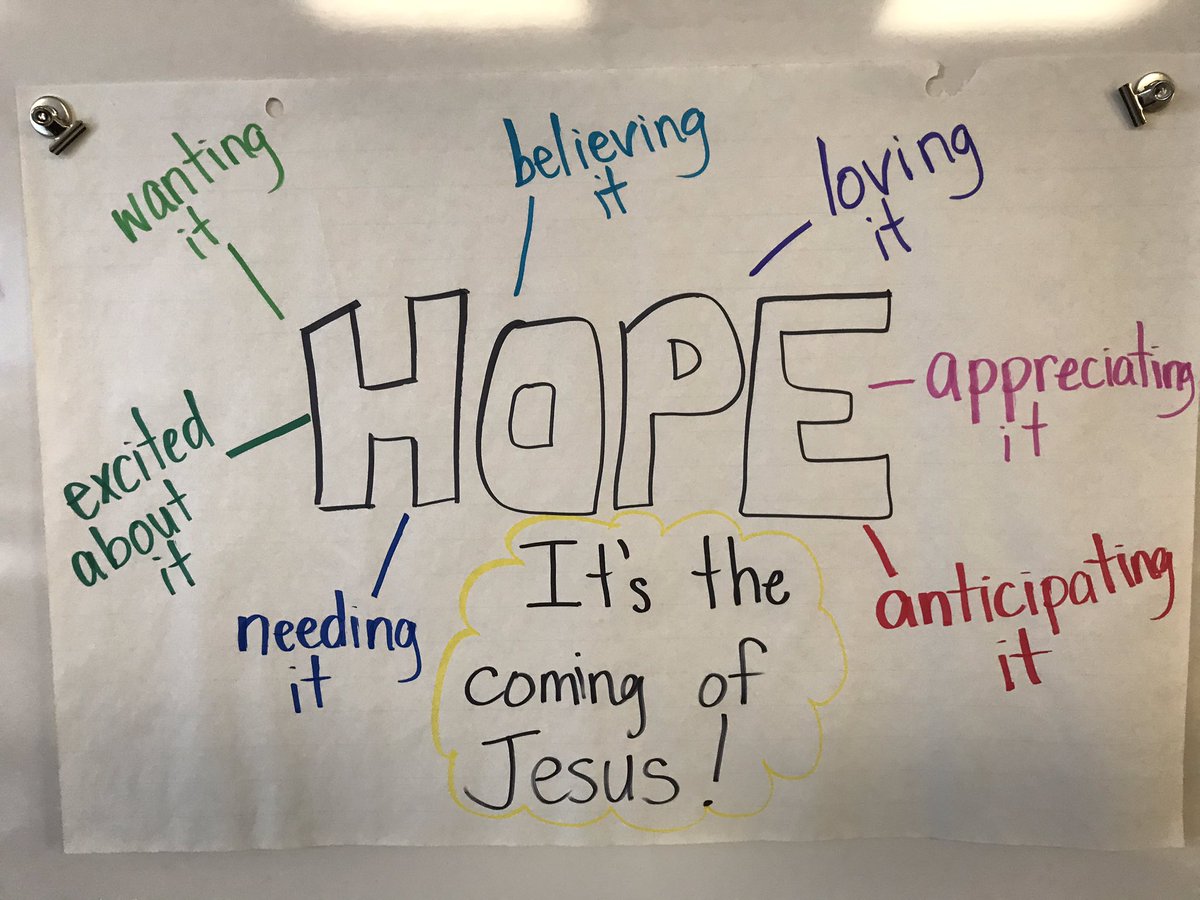 wanting
it
believing
it
loving
it
HOPE
appreciating
it
excited
about
it
needing
it
anticipating
it
It's the
coming of
Jesus!